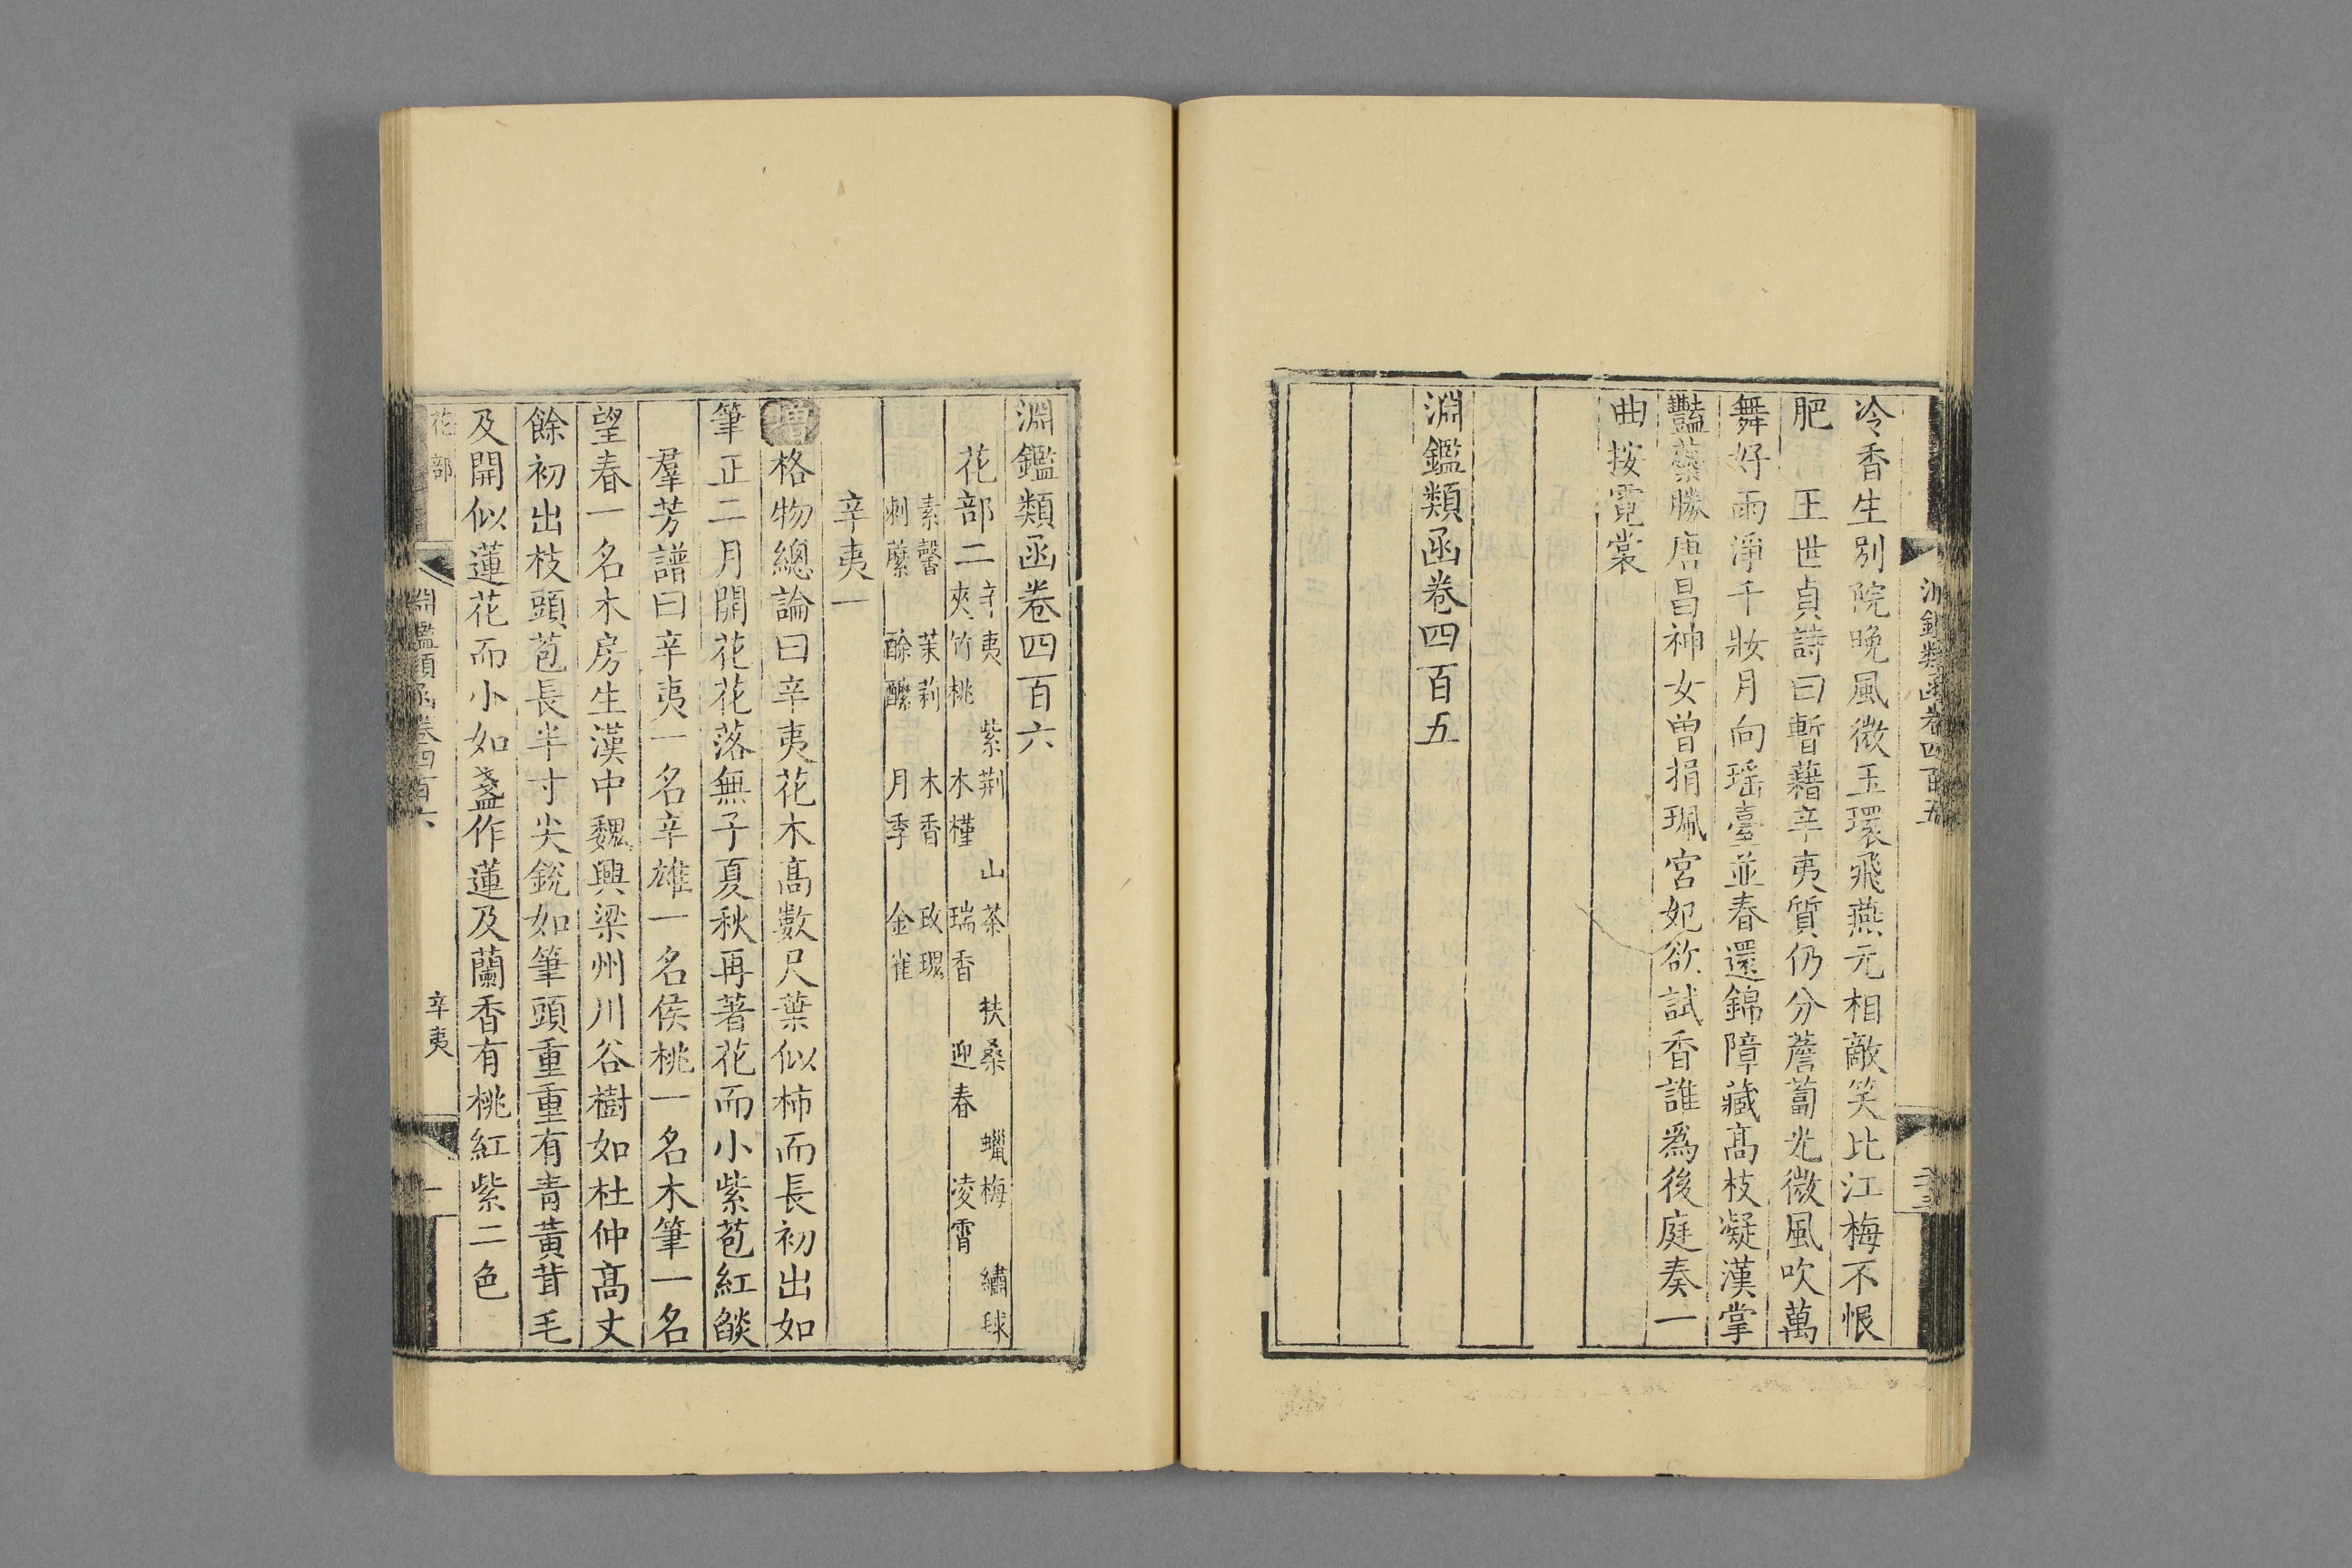 冷香生別院晚風微玉環飛燕元相敵笑比江梅不恨
肥　王世貞詩曰暫藉辛夷質仍分薝蔔光微風吹萬
舞好雨淨千妝月向瑤臺並春還錦障藏高枝凝漢掌
豔蘂勝唐昌神女曾捐珮宮妃欲試香誰為後庭奏一
曲按霓裳
淵鑑類函卷四百五
淵鑑類函卷四百五
淵鑑類函卷四百六
花部二
辛夷　紫荆　山茶　扶桑　蠟梅　繡毬
夾竹桃　木槿　瑞香　迎春　凌霄
素馨　茉莉　木香　玫瑰
刺蘼　酴醾　月季　金雀
辛夷一
增格物總論曰辛夷花木高數尺葉似柿而長初出如
筆正二月開花花落無子夏秋再著花而小紫苞紅燄
羣芳譜曰辛夷一名辛雉一名侯桃一名木筆一名
望春一名木房生漢中魏興梁州川谷樹如杜仲高丈
餘初出枝頭苞長半寸尖銳如筆頭重重有青黃茸毛
及開似蓮花而小如盞作蓮及蘭香有桃紅紫二色
花部
淵鑑類函卷四百六
辛夷
一